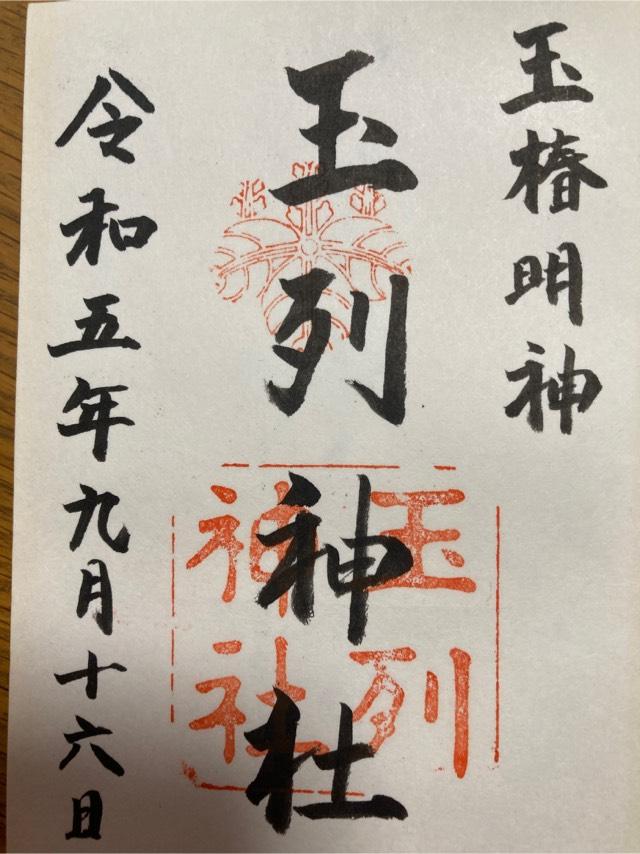 玉椿明神
玉列神社
玉列神社
令和五年九月十六日